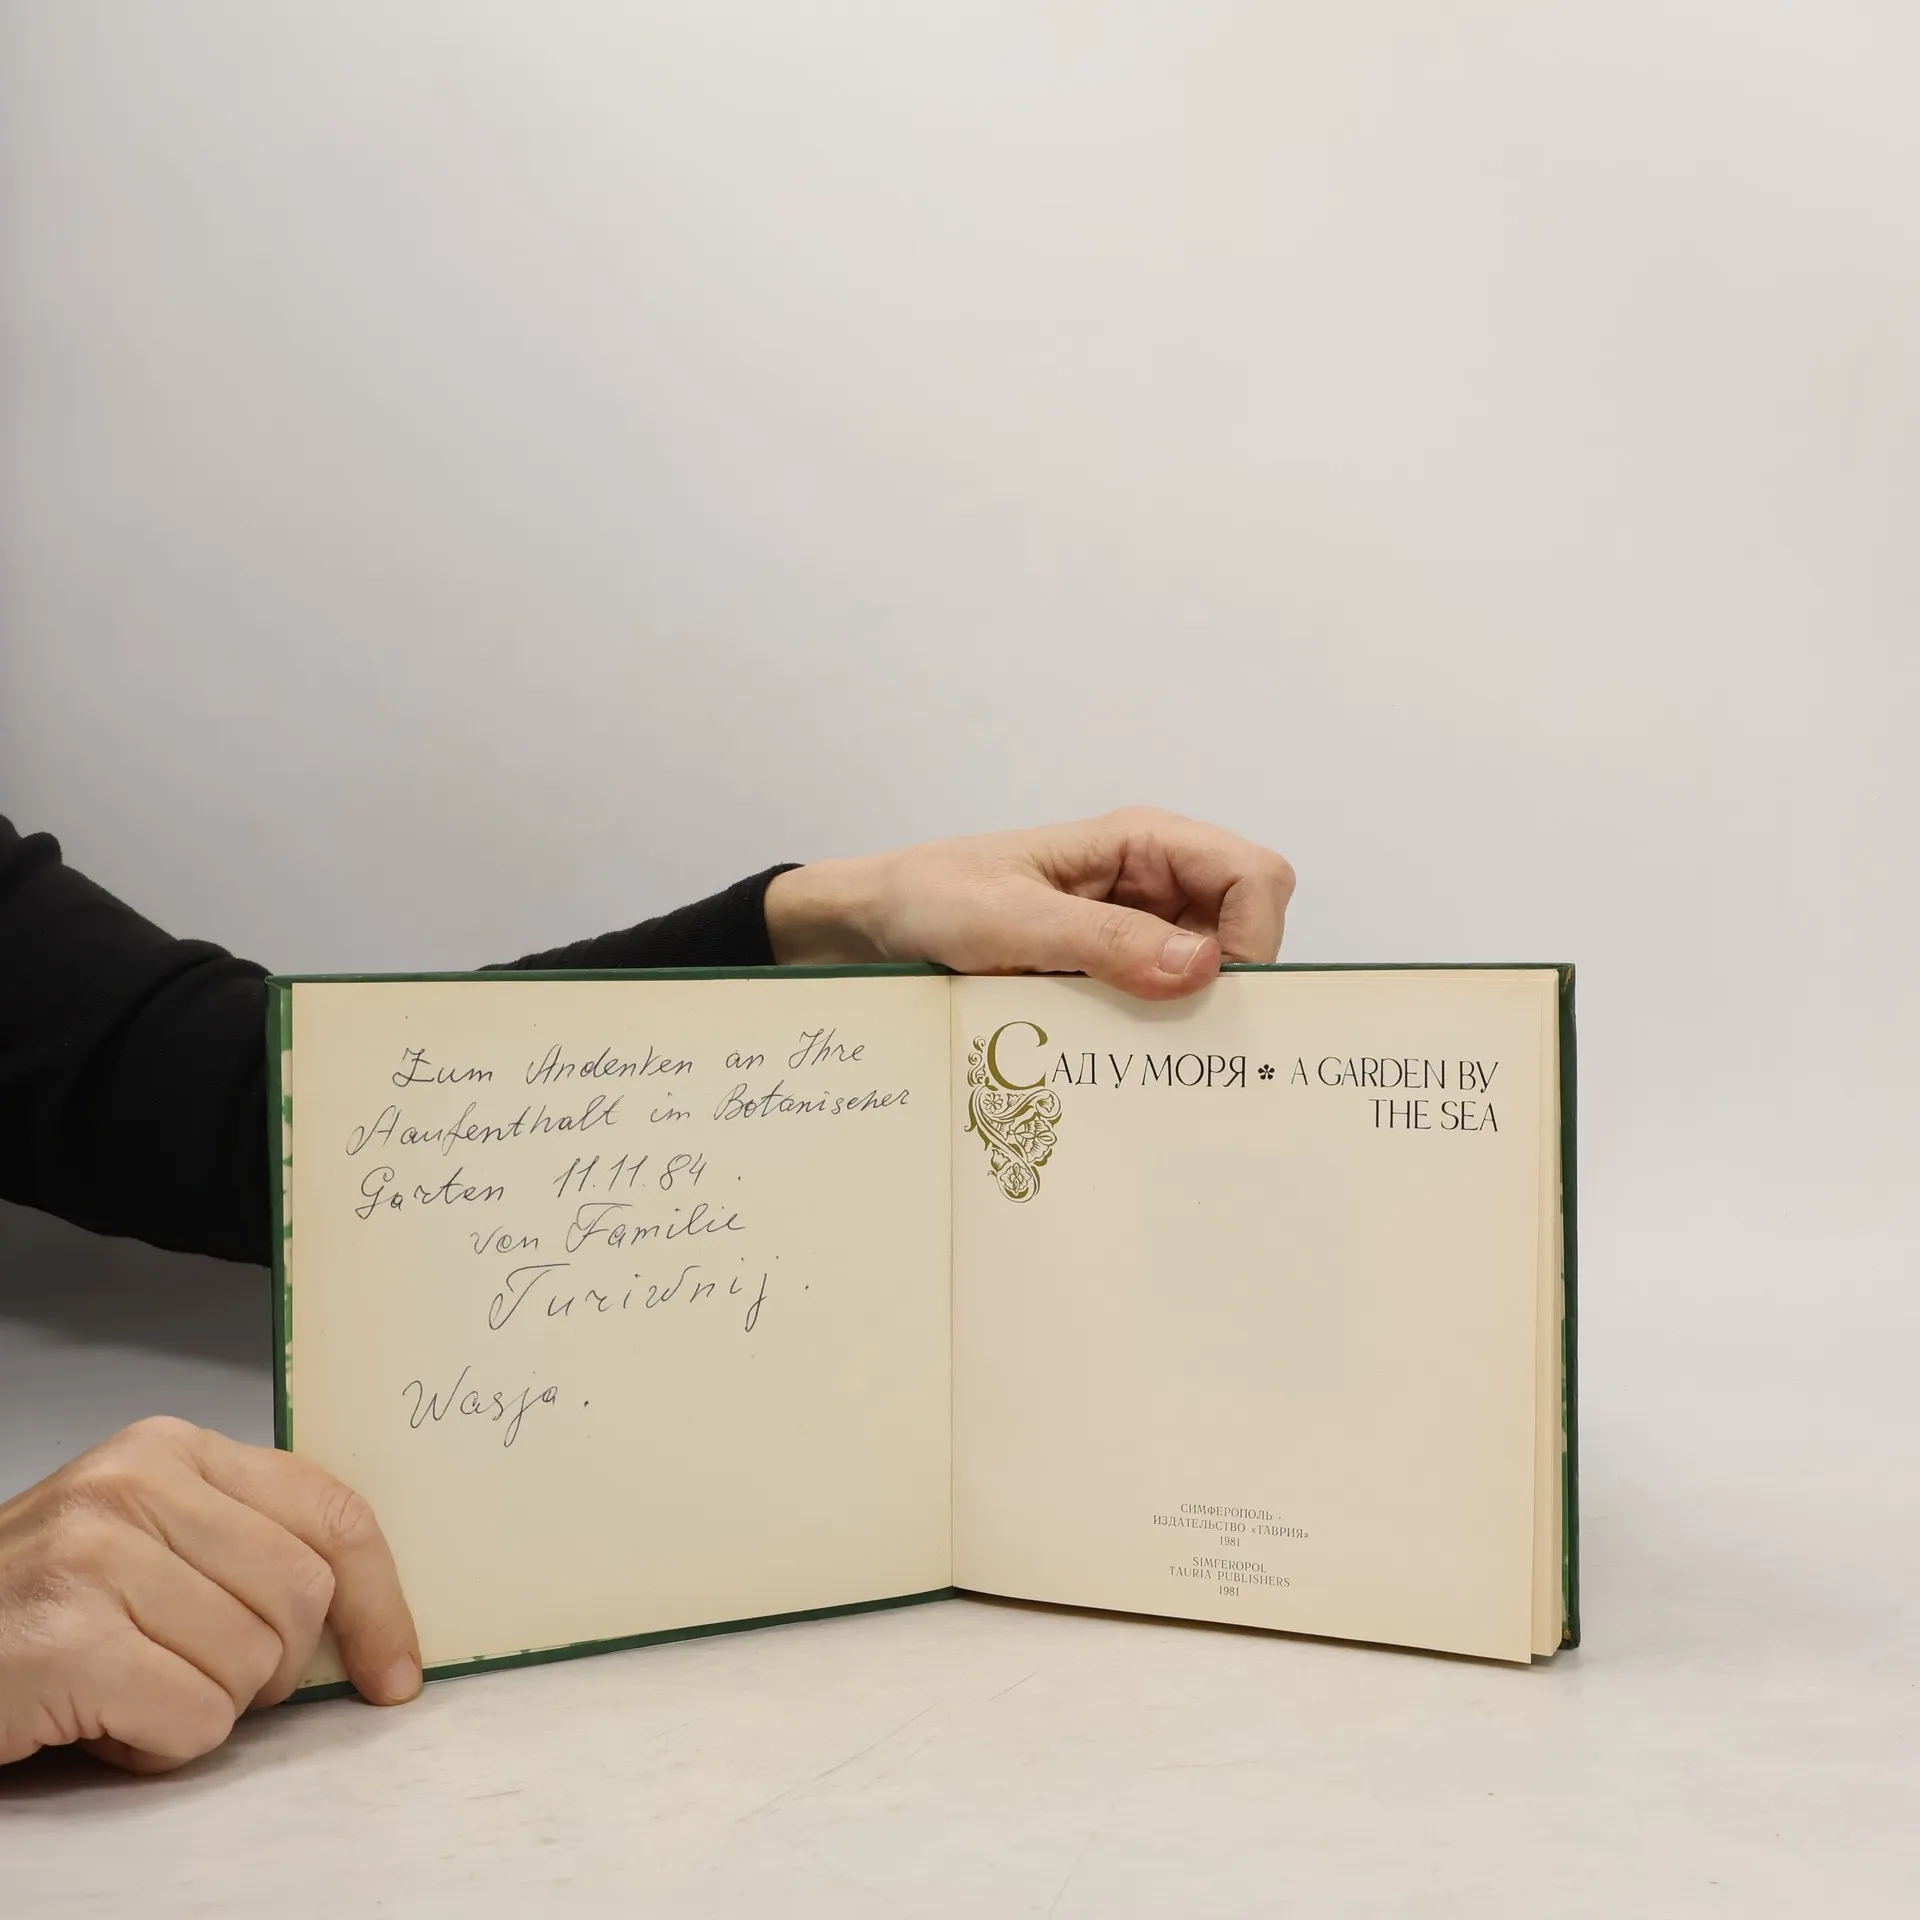 Zum Andenken an Ihre
Aaufenthalt im Botanischer
Garten 11.11.84.
von Familie
Turiwnij.
Wasja.
САД У МОРЯ * A GARDEN BY
THE SEA
СИМФЕРОПОЛЬ
ИЗДАТЕЛЬСТВО «ТАВРИЯ»
1981
SIMFEROPOL
TAURIA PUBLISHERS
1981